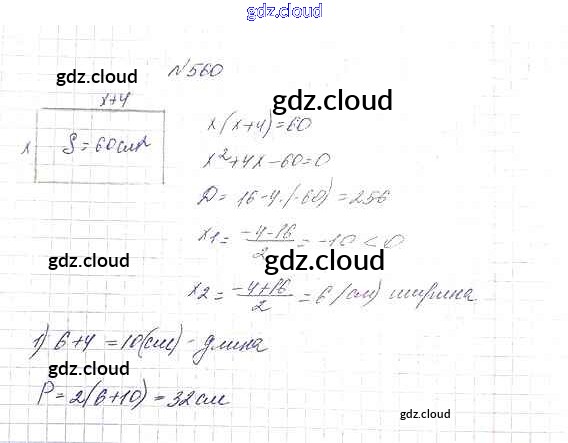 gdz.cloud
№560
gdz.cloud
x+4
gdz.cloud
x
S=60см²
x(x+4)=60
x²+4x-60=0
D=16-4·(-60)=256
x1= (-4-16)/2 = -10<0
gdz.cloud
gdz.cloud
x2= (-4+16)/2 = 6 (см) ширина
1) 6+4=10(см) - длина
gdz.cloud
P=2(6+10)=32см
gdz.cloud